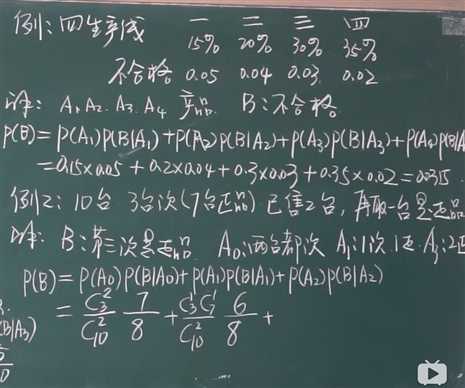 例: 四生产线 一 二 三 四
15% 20% 30% 35%
不合格 0.05 0.04 0.03 0.02
A₁ A₂ A₃ A₄ 产品 B:不合格
P(B)=P(A₁)P(B|A₁)+P(A₂)P(B|A₂)+P(A₃)P(B|A₃)+P(A₄)P(B|A
=0.15×0.05+0.2×0.04+0.3×0.03+0.35×0.02=0.0315
例2: 10台 3台次(7台正品) 已售2台, 再取一台是正品
B:第三次是正品 A₀:两台都次 A₁:1次1正 A₂:2正
P(B)=P(A₀)P(B|A₀)+P(A₁)P(B|A₁)+P(A₂)P(B|A₂)
= C₃²/C₁₀² 7/8 + C₃¹C₇¹/C₁₀² 6/8 +
(B|A₃)